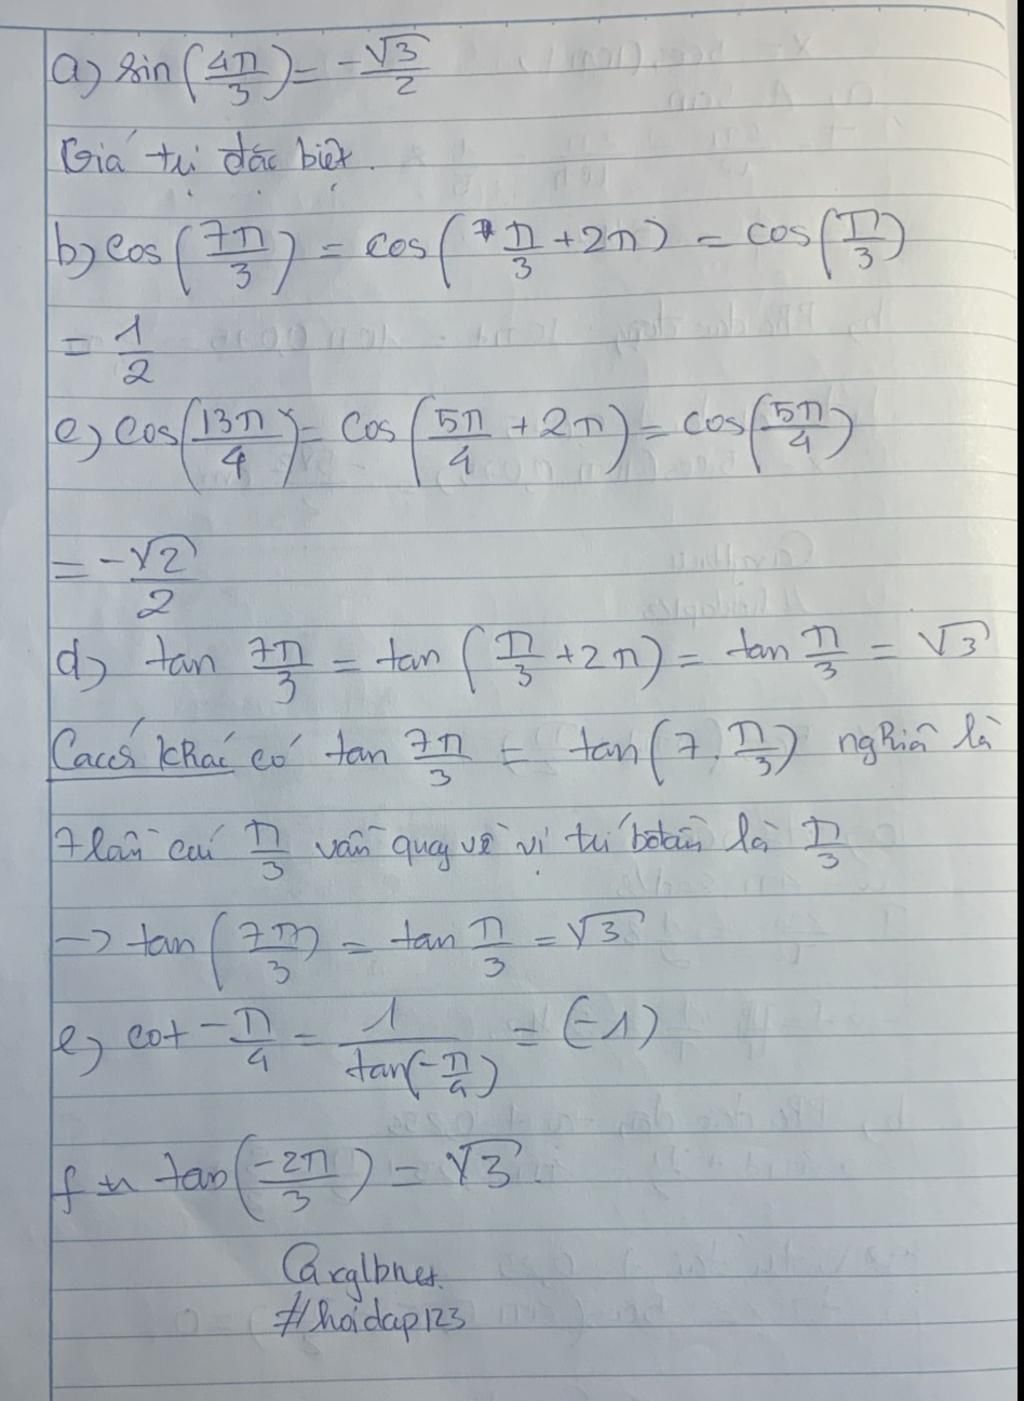 a) sin(4π/3) = -√3/2
Giá trị đặc biệt.
b) cos(7π/3) = cos(π/3 + 2π) = cos(π/3)
= 1/2
c) cos(13π/4) = cos(5π/4 + 2π) = cos(5π/4)
= -√2/2
d) tan 7π/3 = tan(π/3 + 2π) = tan π/3 = √3
Khác có tan 7π/3 = tan(7.π/3) nghĩa là
7 lần cái π/3 vẫn quay về vị trí là π/3
→ tan(7π/3) = tan π/3 = √3
e) cot -π/4 = 1/tan(-π/4) = (-1)
f tan(-2π/3) = √3
#hoidap123